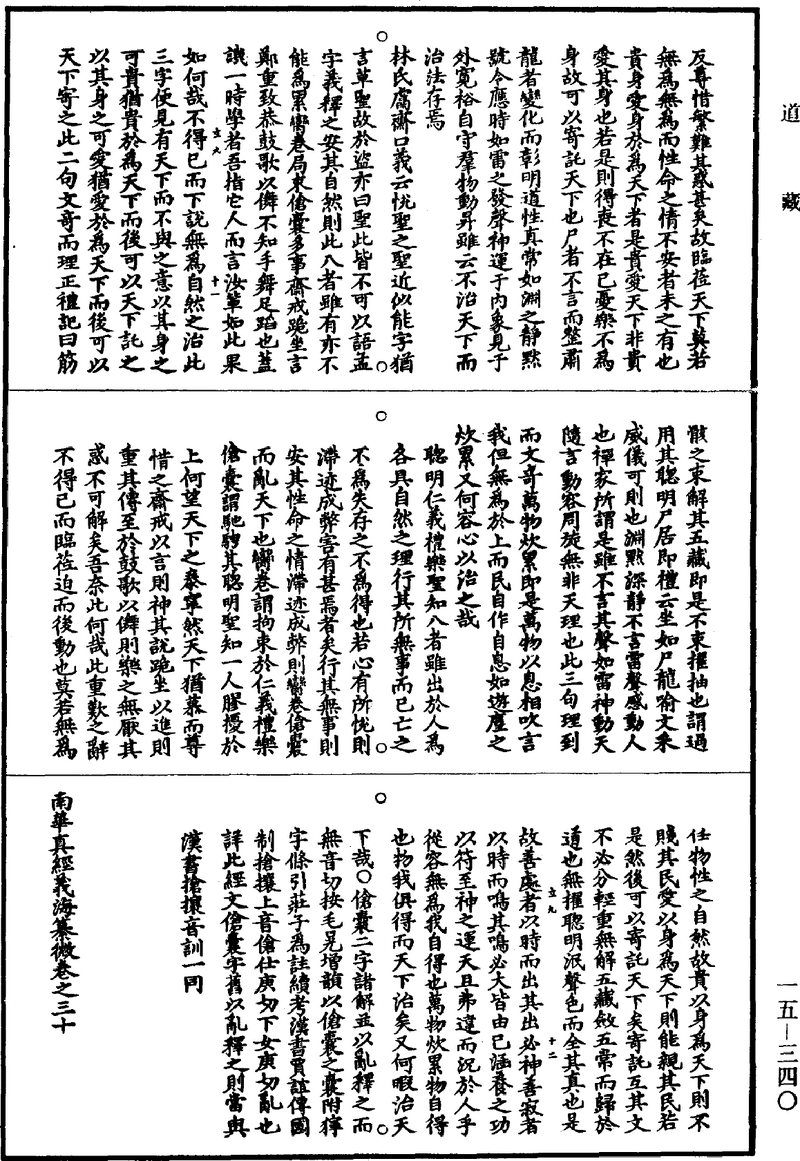 道藏
反尊惜繁難其惑甚矣故臨莅天下莫若
無為無為而性命之情不安者未之有也
貴身愛身於為天下者是貴愛天下非貴
愛其身也若是則得喪不在己憂樂不為
身故可以寄託天下也尸者不言而整肅
龍者變化而彰明道性真常如淵之靜默
號令應時如雷之發聲神運于內象見于
外寬裕自守羣物動昇雖云不治天下而
治法存焉
林氏鬳齋口義云恱聖之聖近似能字猶
言草聖故於盜亦曰聖此皆不可以語孟
字義釋之安其自然則此八者雖有亦不
能為累臠卷局束傖囊多事齋戒跪坐言
鄭重致恭鼓歌以儛不知手舞足蹈也蓋
譏一時學者吾指它人而言汝輩如此果
如何哉不得已而下說無為自然之治此
三字便見有天下而不與之意以其身之
可貴猶貴於為天下而後可以天下託之
以其身之可愛猶愛於為天下而後可以
天下寄之此二句文奇而理正禮記曰筋
骸之束解其五藏即是不束擢抽也謂過
用其聰明尸居即禮云坐如尸龍喻文采
威儀可則也淵黙深靜不言雷聲感動人
也禪家所謂是雖不言其聲如雷神動天
隨言動容周旋無非天理也此三句理到
而文奇萬物炊累即是萬物以息相吹言
我但無為於上而民自作自息如遊塵之
炊累又何容心以治之哉
聰明仁義禮樂聖知八者雖出於人為
各具自然之理行其所無事而已亡之
不為失存之不為得也若心有所恱則
滯迹成弊害有甚焉者矣行其無事則
安其性命之情滯迹成弊則臠卷傖囊
而亂天下也臠卷謂拘束於仁義禮樂
傖囊謂馳騁其聰明聖知一人膠擾於
上何望天下之泰寧然天下猶慕而尊
惜之齋戒以言則神其說跪坐以進則
重其傳至於鼓歌以儛則樂之無厭其
惑不可解矣吾奈此何哉此重歎之辭
不得已而臨莅迫而後動也莫若無為
任物性之自然故貴以身為天下則不
賤其民愛以身為天下則能親其民若
是然後可以寄託天下矣寄託互其文
不必分輕重無解五藏斂五常而歸於
道也無擢聰明泯聲色而全其真也是
故善處者以時而出其出必神善寂者
以時而鳴其鳴必大皆由已涵養之功
以符至神之運天且弗違而況於人乎
從容無為我自得也萬物炊累物自得
也物我俱得而天下治矣又何暇治天
下哉○傖囊二字諸解並以亂釋之而
無音切按毛晃增韻以傖囊之囊附獰
字條引莊子為註續考漢書賈誼傳國
制搶攘上音傖仕庚切下女庚切亂也
詳此經文傖囊字舊以亂釋之則當與
漢書搶攘音訓一同
南華真經義海纂微卷之三十
立九
十一
立九
十二
一五—三四〇